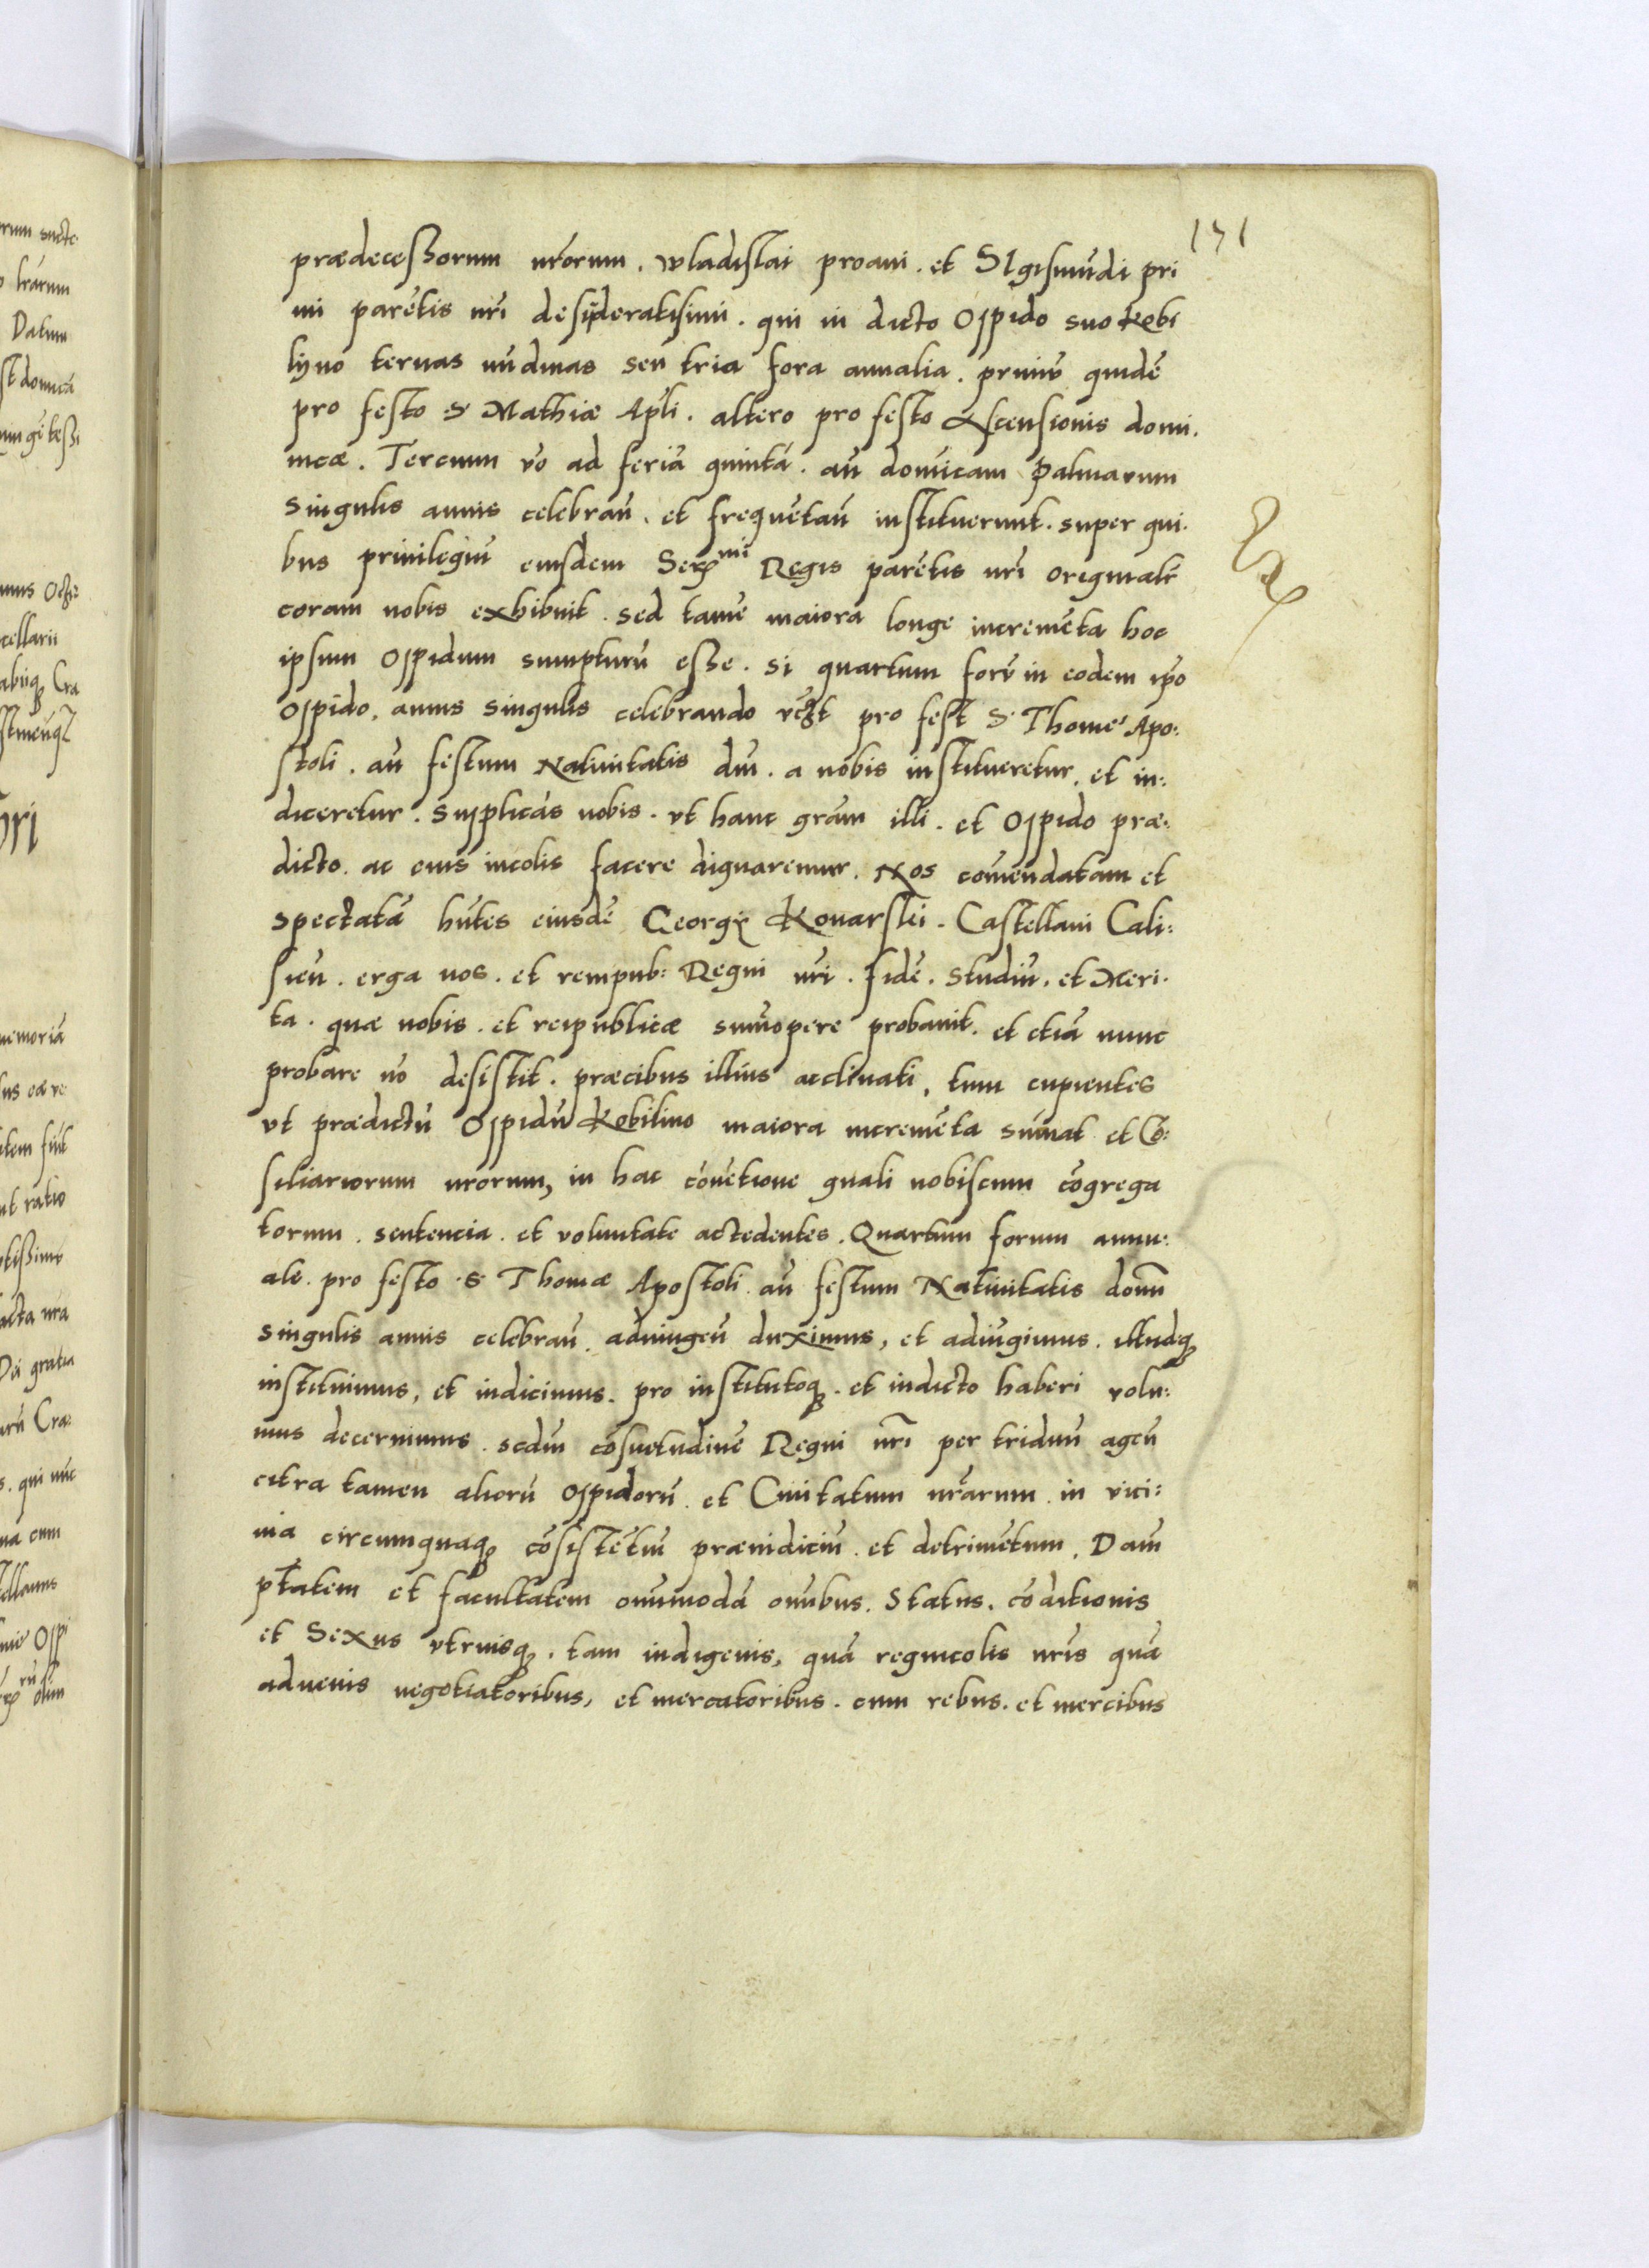 171
prædeceßorum nrōrum. wladislai proaui. et SIgismūdi pri
mi parētis nrī desÿderatisimi. qui in dicto Oppido suo Kobi
lÿno ternas nūdinas seu tria fora annalia. primū quidē
pro festo S Mathiæ Apli. altero pro festo Ascensionis domi.
nicæ. Tercium vo ad feriā quintā. añ domīicam Palmarum
singulis annis celebrañ. et frequētañ instituerunt. super qui.
bus priuilegiū eiusdem Serᵐⁱ Regis parētis nrī originalr
coram nobis exhibuit. sed tamē maiora longe incremēta hoc
ipsum Oppidum sumpturū eße. si quartum forū in eodem ipo
Oppido. annis singulis celebrando pro fest S Thome Apo:
stoli. añ festum Natiuitatis dnī. a nobis institueretur. et in:
diceretur. Supplicās nobis. vt hanc gram illi. et Oppido præ:
dicto. ac eius incolis facere dignaremur. Nos comendatam et
spectatā hūtes eiusdē Georgÿ Konarski. Castellani Cali:
sieñ. erga nos. et rempub: Regni nrī. fidē. studiū. et Meri.
ta. quæ nobis. et reipublicæ sumopere probauit. et etiā nunc
probare nō desistit. præcibus illius acclinati, tum cupientes
vt prædictū Oppidū Kobilino maiora incremēta sumat et Cō:
siliariorum nrorum, in hac cōuētione gnali nobiscum cōgrega
torum. sentencia. et voluntate accedentes. Quartum forum annu:
ale. pro festo S. Thomæ Apostoli añ festum Natiuitatis domī
singulis annis celebrañ. adiungeñ duximus, et adiūgimus. illudq₃
instituimus, et indicimus. pro institutoq₃. et indicto haberi volu:
mus decernimus. scdm cōsuetudinē Regni nrī per triduū ageñ
citra tamen aliorū Oppidorū. et Ciuitatum nrārum in vici:
nia circumquaq₃ cōsistētiū præiudiciū. et detrimētum. Dam
ptātem et facultatem omnimodā omībus. Status. cōditionis
et Sexus vtriusq₃. tam indigenis, quā regnicolis nrīs quā
aduenis negotiatoribus, et mercatoribus. cum rebus. et mercibus